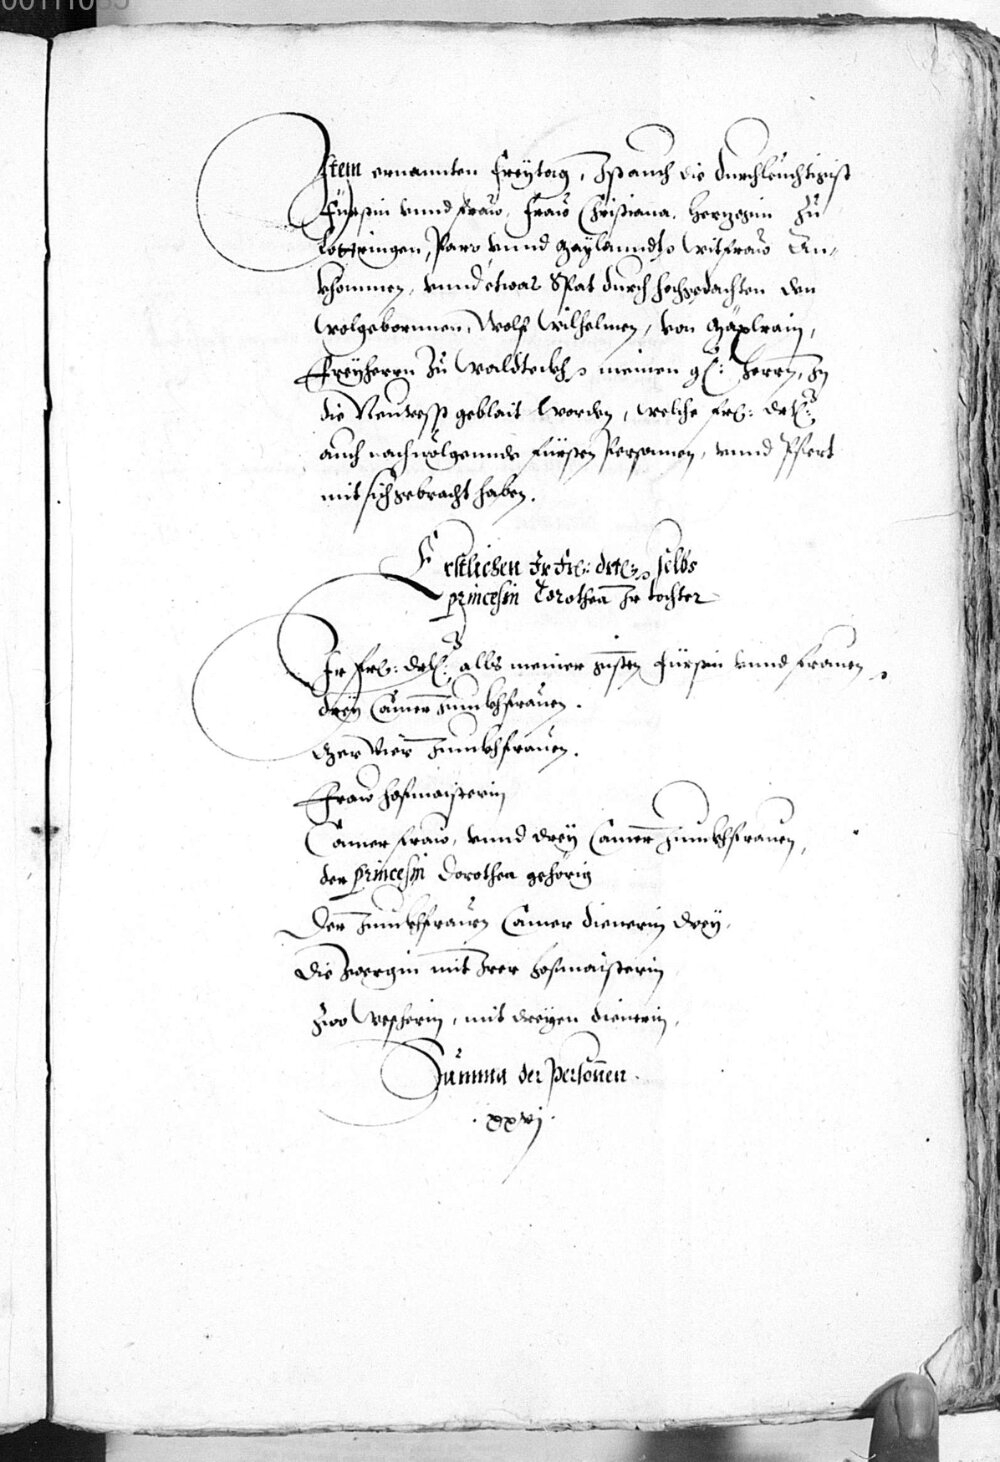 00111055
Item ernannten Freÿtag, Ist auch die durchleuchtigist
Fürstin vnnd fraw, fraw Christiana, Hertzogin zu
Lottringen, Parr vnnd Maÿlanndts Witfraw An-
khommen, vnnd etwas Spat durch hochgedachten den
Wolgebornnen, Wolf Wilhelmen, von Mäxlrain,
Freÿherrn zu Waldeckhs meinen g: herrn, In
die Neuvesst geblait worden, welche Frl: drl:
auch nachuolgennde Fürsten Personnen, vnnd Pfert
mit sich gebracht haben.
Erstlichen Ir Frl: drl: selbs
princesin Dorothea Ir tochter
Ir Frl: drl: alls meiner gnsten Fürstin vnnd Frauen
dreÿ Camer Junckhfrauen.
Mer Vier Junckhfrauen.
Fraw hofmaisterin
Camer fraw, vnnd dreÿ Camer Junckhfrauen,
der princesin Dorothea gehörig
Der Junckhfrauen Camer dienerin dreÿ,
Die Zwergin mit Irer hofmaisterin
Zwo Wescherin, mit dreÿen dienerin,
Summa der Personen.
. xxvj .